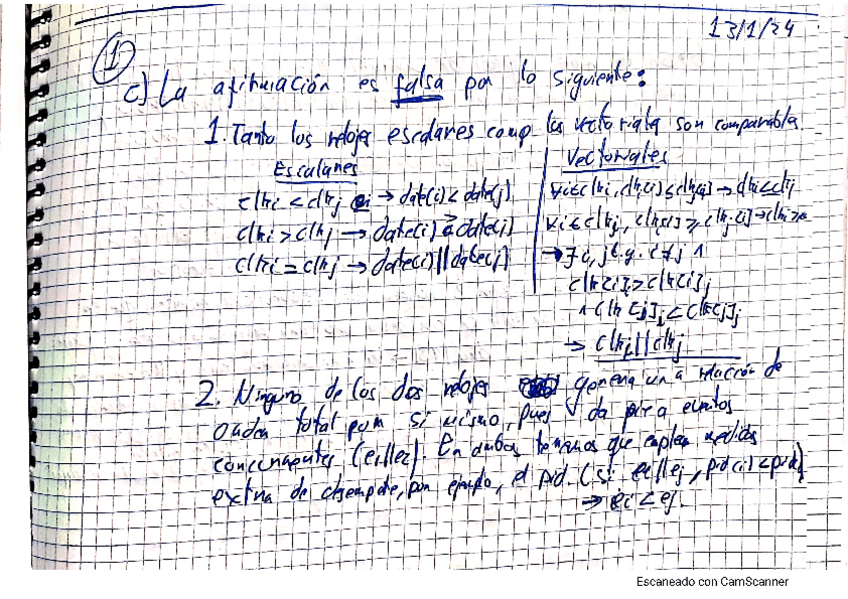 13/1/24
①
c) La afirmación es falsa por lo siguiente:
1. Tanto los relojes escalares como los vectoriales son comparables.
Escalares
clki < clkj → date(i) < date(j)
clki > clkj → date(i) > date(j)
clki = clkj → date(i) || date(j)
Vectoriales
∀i ∈ clki, clki[i] ≤ clkj[i] → clki ≤ clkj
∀i ∈ clkj, clki[i] ≥ clkj[i] → clki ≥
→ ∃ i, j t.q. i ≠ j ∧
clk[i]i > clk[i]j
∧ clk[j]i < clk[j]j
→ clki || clkj
2. Ninguno de los dos relojes genera una relación de
orden total por si mismo, pues da pie a eventos
concurrentes (ei||ej). En ambos tenemos que emplear medidas
extra de desempate, por ejemplo, el pid. (si ei || ej, pid(i) < pid(j)
→ ei < ej.
Escaneado con CamScanner